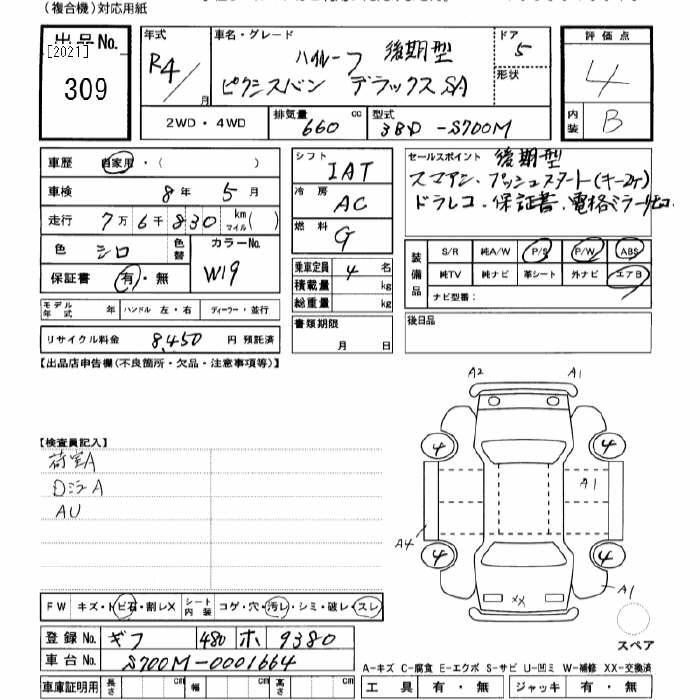 (複合機)対応用紙
出品No. 年式 車名・グレード ドア 評価点
[2021] R4/月 ハイルーフ 後期型 5 4
309 ピクシスバン デラックスSA 形状
2WD・4WD 排気量 660 cc 型式 3BD-S700M 内装 B
車歴 自家用・( ) シフト IAT セールスポイント 後期型
車検 8年 5月 冷房 AC スマアシ.プッシュスタート(キー2ケ)
走行 7万6千830 km マイル( ) 燃料 G ドラレコ.保証書.電格ミラー
色 シロ 色替 カラーNo. W19
保証書 有・無 乗車定員 4名
装備品 S/R 純A/W P/S P/W ABS
純TV 純ナビ 革シート 外ナビ エアB
ナビ型番:
積載量 kg
総重量 kg
モデル年式 年 ハンドル 左・右 ディーラー・並行
書類期限 月 日 後日品
リサイクル料金 8,450 円 預託済
【出品店申告欄(不良箇所・欠品・注意事項等)】
A2 A1
4 4
【検査員記入】
荷室A
Dミラ A A1
AU
A4
4 4
A1
XX
FW キズ・ト ビ石・割レX シート内装 コゲ・穴・汚レ・シミ・破レ・スレ
スペア
登録No. ギフ 480 ホ 9380
車台No. S700M-0001664
A-キズ C-腐食 E-エクボ S-サビ U-凹ミ W-補修 XX-交換済
車庫証明用 長さ cm 幅 cm 高さ cm 工具 有・無 ジャッキ 有・無